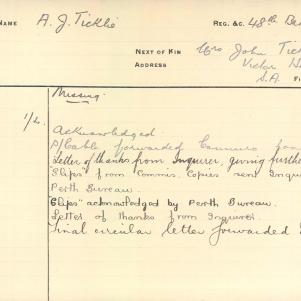 NAME A. J. Ticklie REG. &C. 48th
NEXT OF KIN Mrs John Tic
ADDRESS Victor H
S.A. F
Missing.
Acknowledged.
P/Cable forwarded Commrs
Letter of thanks from Inquirer, giving furthe
"Slips" from Commis. Copies sent Inqui
Perth Bureau.
"Slips" acknowledged by Perth Bureau.
Letter of thanks from Inquirer.
Final circular letter forwarded